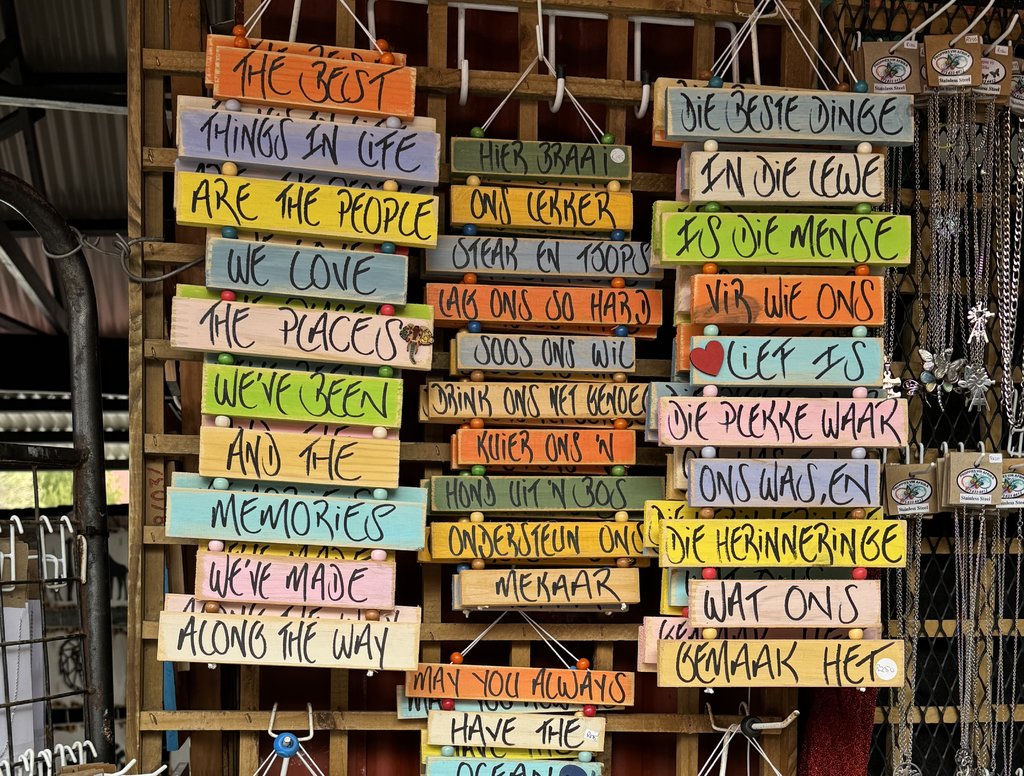 THE BEST
THINGS IN LIFE
ARE THE PEOPLE
WE LOVE
THE PLACES
WE'VE BEEN
AND THE
MEMORIES
WE'VE MADE
ALONG THE WAY
HIER BRAAI
ONS LEKKER
STEAK EN TJOPS
LAG ONS SO HARD
SOOS ONS WIL
DRINK ONS MET GENOEG
KUIER ONS 'N
HOND UIT 'N BOS
ONDERSTEUN ONS
MEKAAR
MAY YOU ALWAYS
HAVE THE
OCEAN
DIE BESTE DINGE
IN DIE LEWE
IS DIE MENSE
VIR WIE ONS
LIEF IS
DIE PLEKKE WAAR
ONS WAS, EN
DIE HERINNERINGE
WAT ONS
GEMAAK HET
Stainless Steel
Stainless Steel
Stainless Steel
Stainless Steel